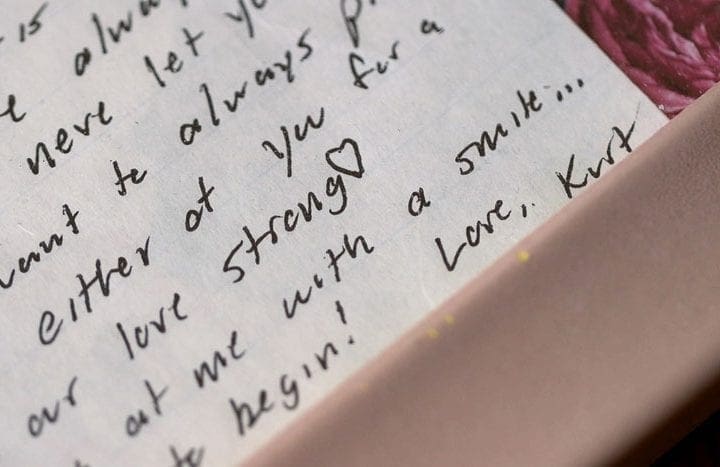 is
alwa
never let yo
want to always p
either at you for a
our love strong♡
at me with a smile...
to begin! Love, Kurt